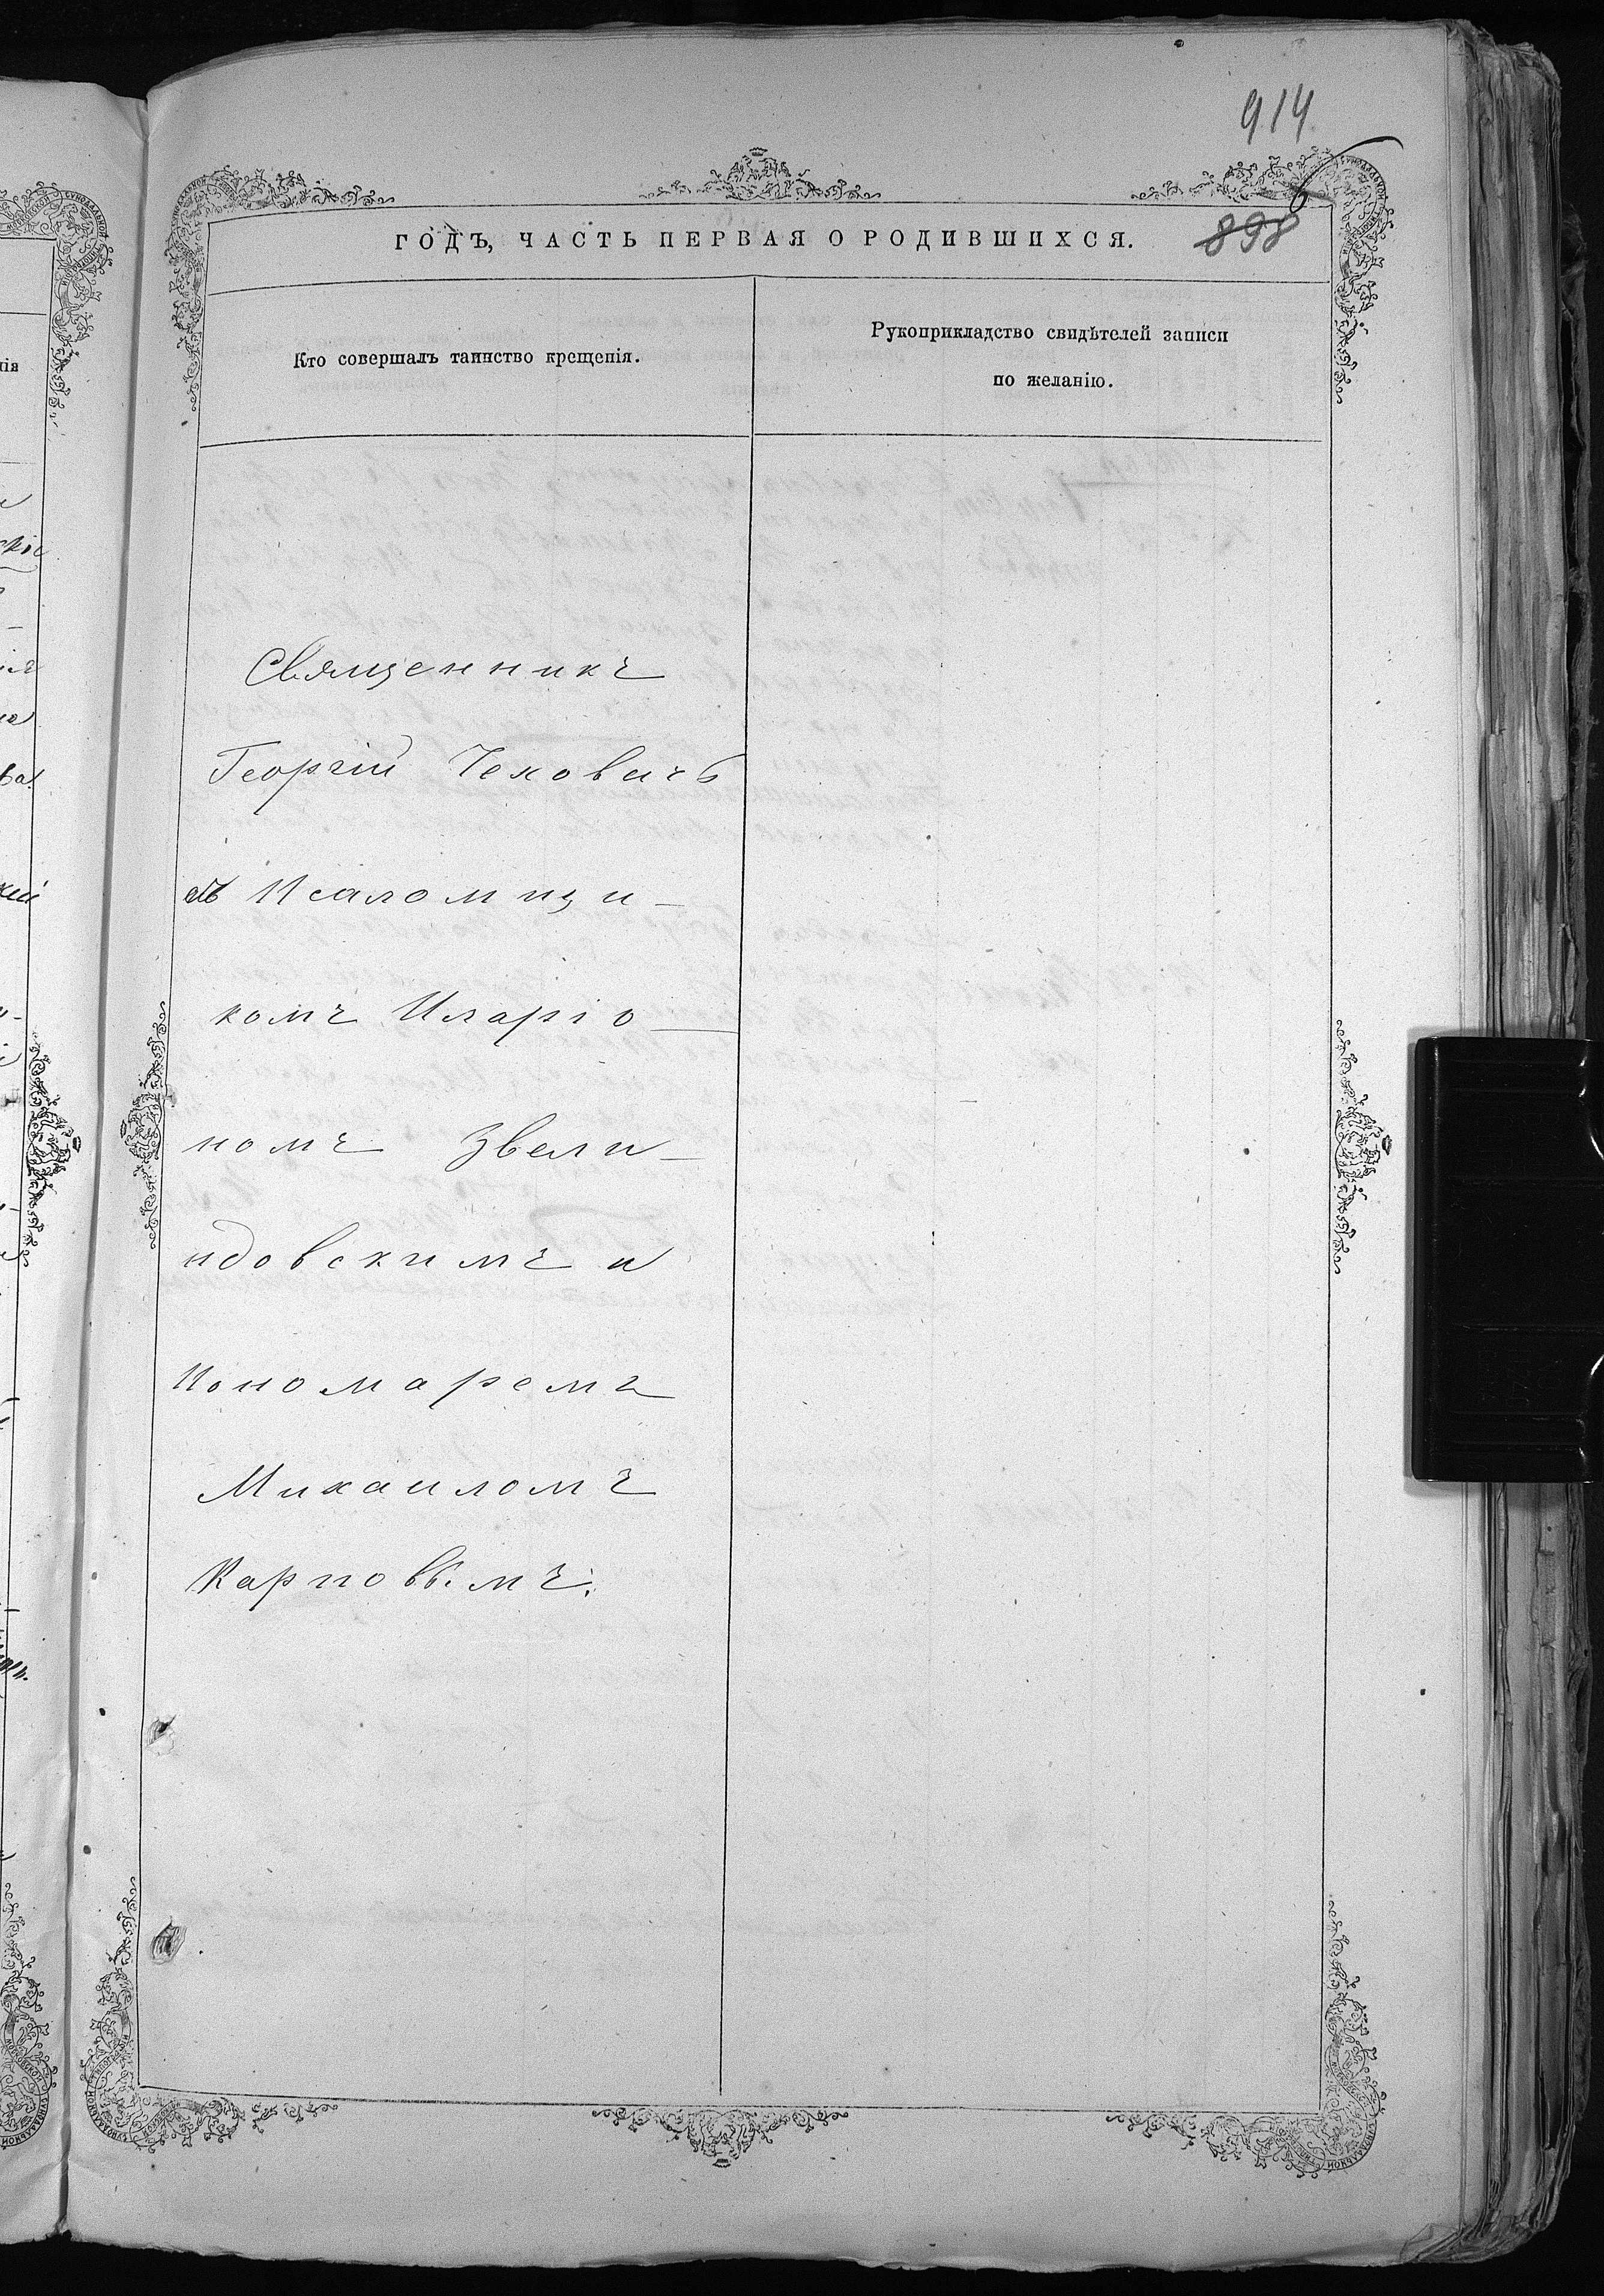 914
898
ГОДЪ, ЧАСТЬ ПЕРВАЯ О РОДИВШИХСЯ.
Кто совершалъ таинство крещенія.
Рукоприкладство свидѣтелей записи
по желанію.
Священникъ
Георгій Чеховичъ
съ Псаломщи-
комъ Иларіо-
номъ Звели-
ндовскимъ и
Пономаремъ
Михаиломъ
Карповымъ.